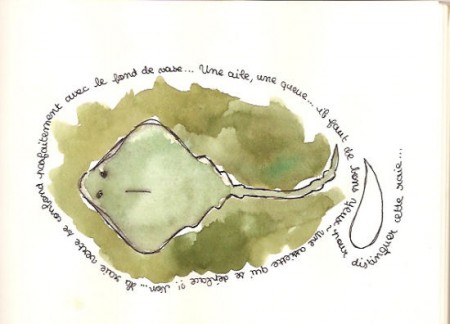 une assiette qui se déplace ?! Non... la raie verte se confond parfaitement avec le fond de vase... Une aile, une queue... il faut de bons yeux pour distinguer cette raie...